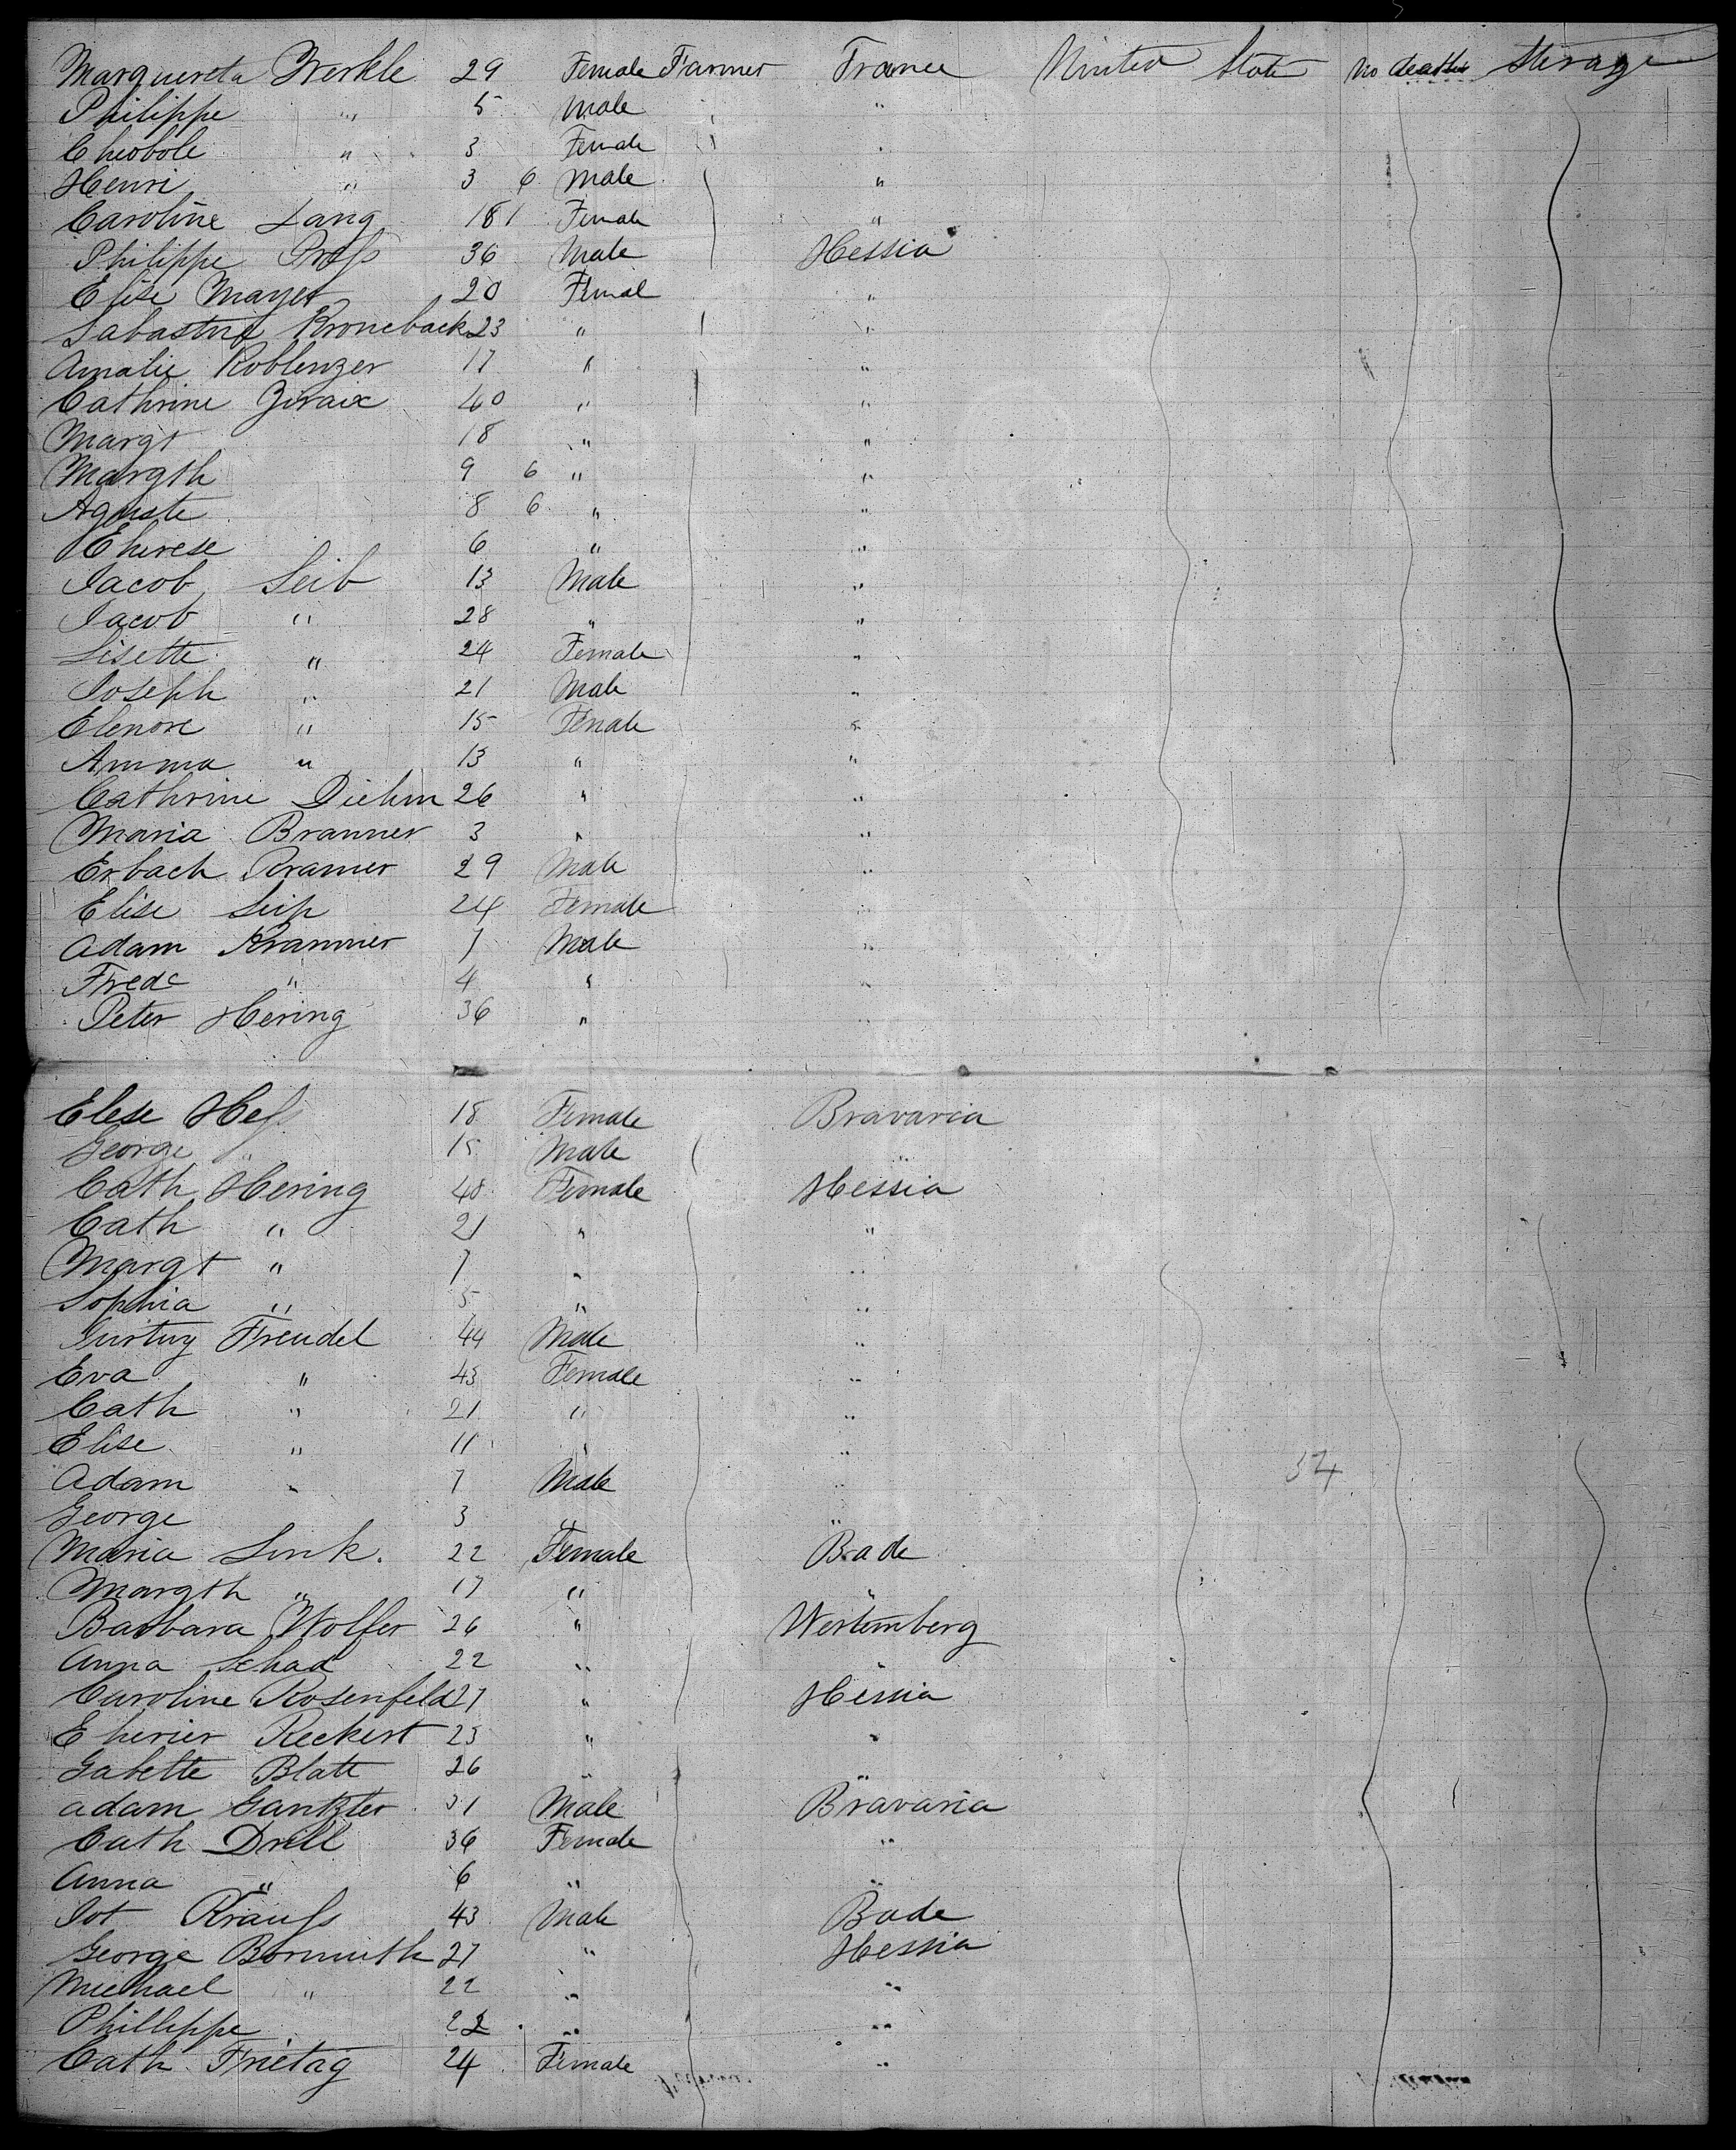 Marguereta Werkle 29 Female Farmer France United State no deaths Sterage
Philippe " 5 Male " "
Cheobole " 3 Female " "
Henri " 3 6 Male "
Caroline Lang 18 1 Female "
Philippe Proſs 36 Male Hessia
Elise Mayer 20 Femal "
Sabastnie Kroneback 23 " "
Amalie Koblenzer 17 " "
Cathrine Ziraix 40 " "
Margt 18 " "
Margth 9 6 " "
Aguste 8 6 " "
Eherese 6 " "
Jacob Leib 13 Male "
Jacob " 28 " "
Lisette " 24 Female "
Joseph " 21 Male "
Elenore " 15 Female "
Amma " 13 " "
Cathrine Diehm 26 " "
Maria Branner 3 " "
Erbach Kramer 29 Male "
Elise Seip 24 Female "
Adam Krammer 7 Male "
Fredc " 4 " "
Peter Hering 36 " "
Elese Heſs 18 Female Bravaria
George " 15 Male "
Cath Hering 48 Female Hessia
Cath " 21 " "
Margt " 7 " "
Sophia " 5 " "
Freudel 44 Male "
Eva " 43 Female "
Cath " 21 " "
Elise " 11 " "
Adam " 7 Male "
George 3 " "
Maria Link. 22 Female Bade
Margth " 17 " "
Barbara Wolfer 26 " Wertemberg
Anna Schad 22 " "
Caroline Rosenfeld 27 " Hessia
Eherier Reckert 25 " "
Gabette Blatt 26 " "
Adam Gantzler 31 Male Bravaria
Cath Drell 36 Female "
Anna " 6 " "
Jot Krauſs 43 Male Bade
George Bormuth 27 " Hessia
Michael " 22 " "
Phillippe 22 " "
Cath Frietag 24 Female "